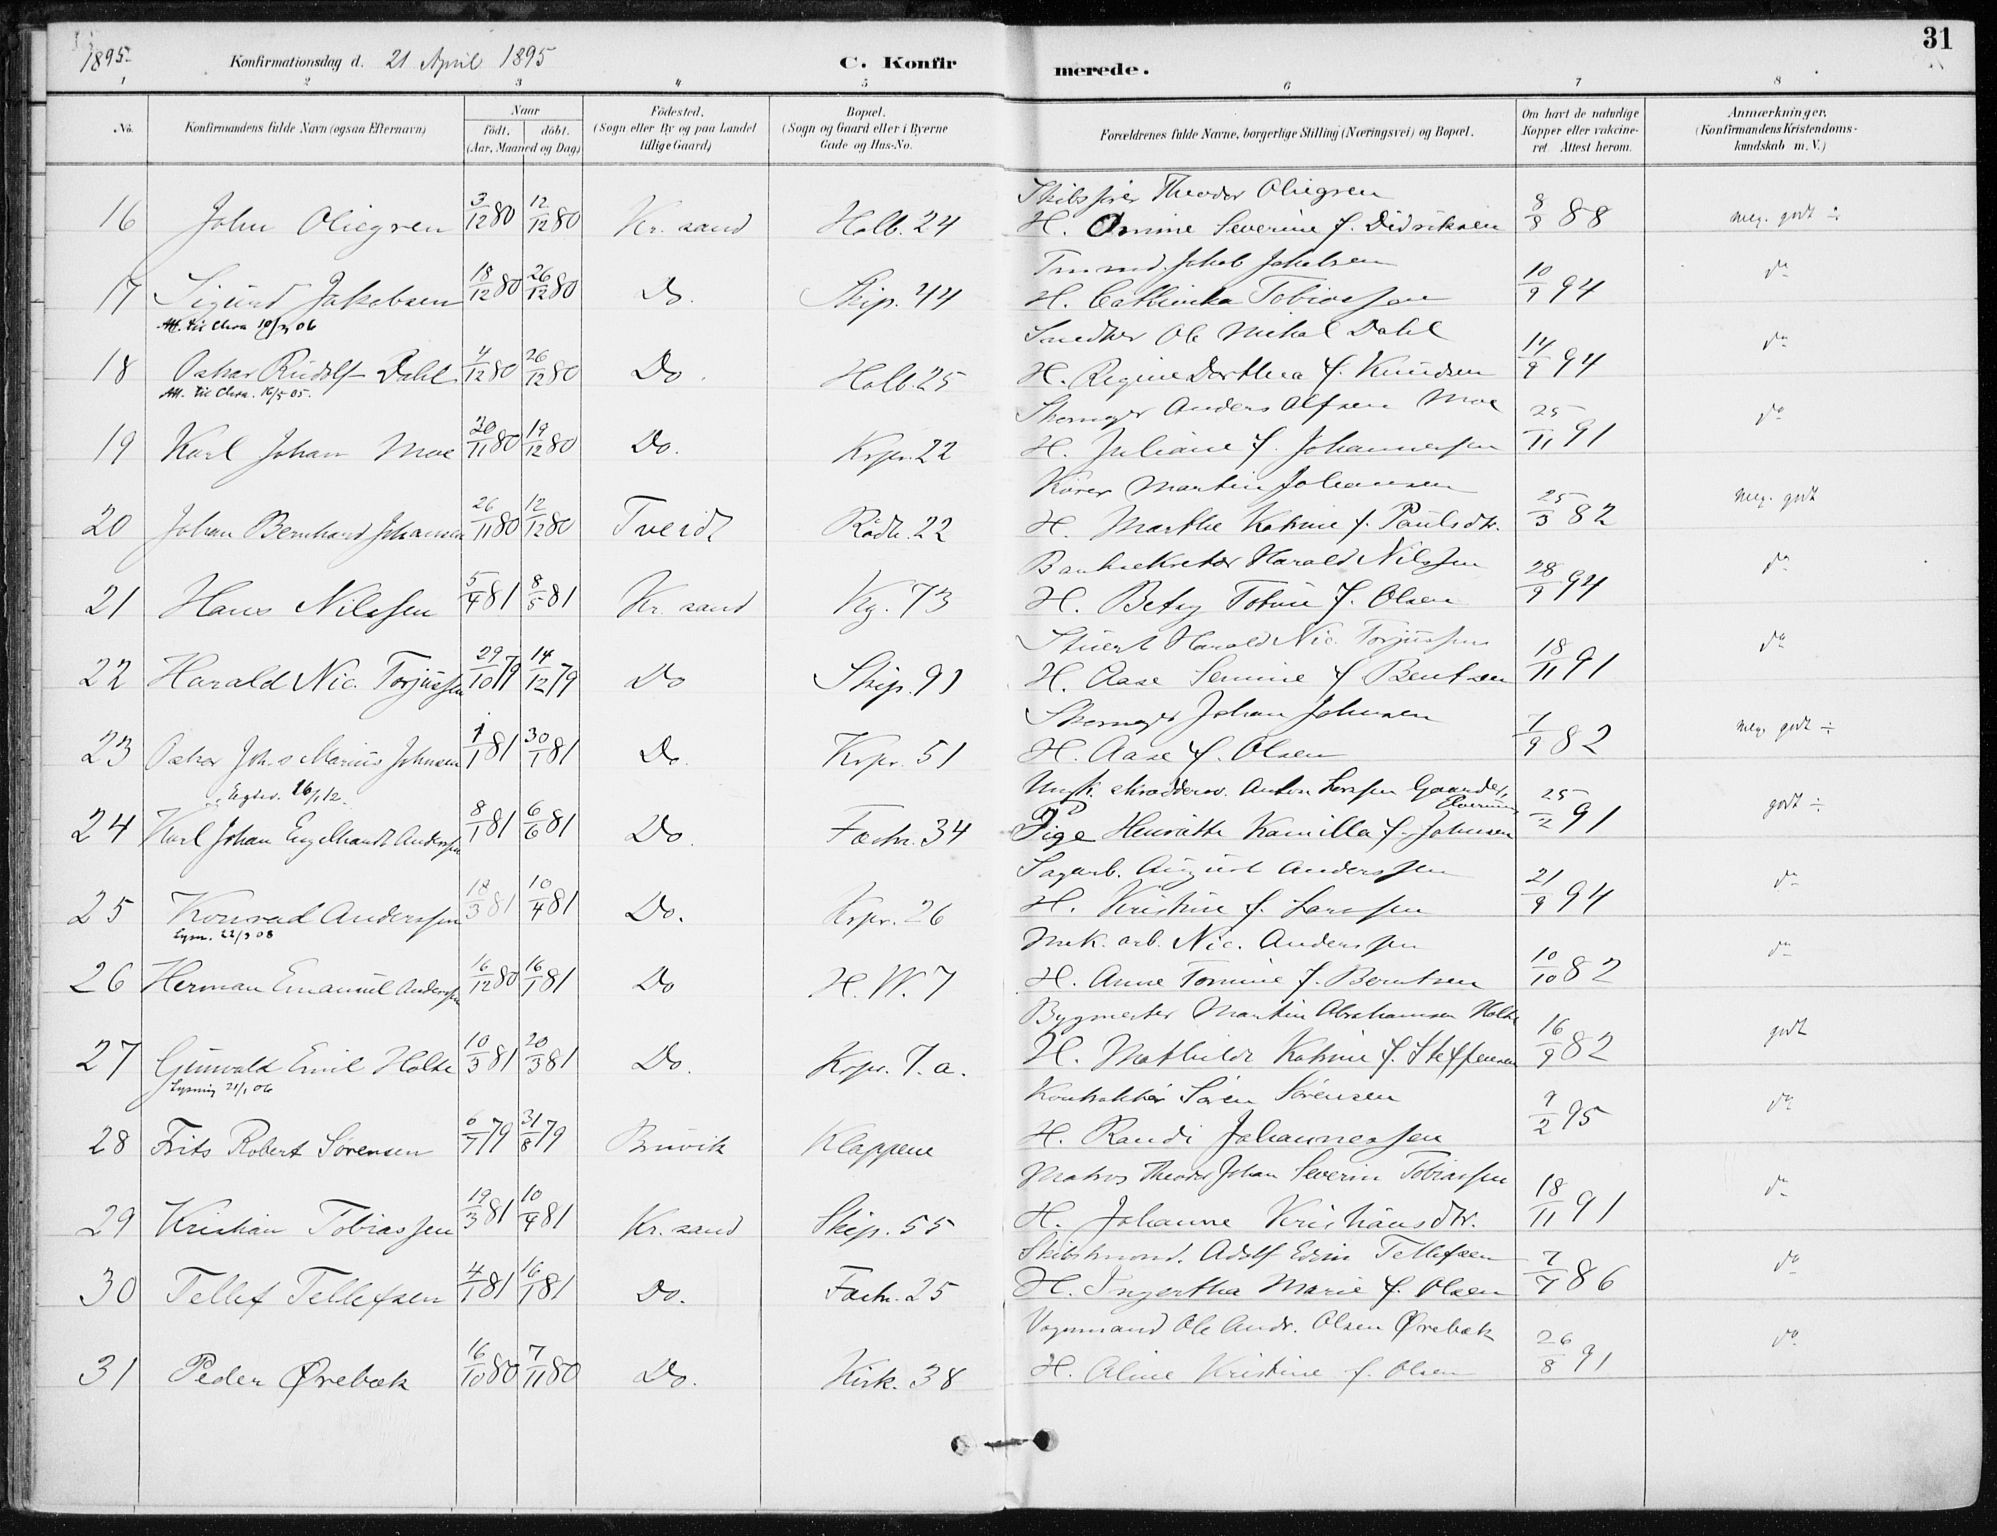 1895
Konfirmationsdag d. 21 April 1895
C. Konfirmerede.
31
1 2 3 4 5 6 7 8
No.
Konfirmandens fulde Navn (ogsaa Efternavn)
Naar
födt. döbt.
(Aar, Maaned og Dag)
Födested.
(Sogn eller By og paa Landet
tillige Gaard)
Bopæl.
(Sogn og Gaard eller i Byerne
Gade og Hus-No.
Forældrenes fulde Navne, borgerlige Stilling (Næringsvei) og Bopæl.
Om havt de naturlige
Kopper eller vakcine-
ret. Attest herom.
Anmærkninger.
(Konfirmandens Kristendoms-
kundskab m. V.)
Theodor Oliegren
16 John Oliegren 3/12 80 12/12 80 Kr. sand Holb. 24 H. Severine f. Didriksen 8/8 88 meg. godt ÷
Jakob Jakobsen
17 Sigurd Jakobsen 18/12 80 26/12 80 Do. Skip. 44 H. Cathinka Tobiassen 10/9 94 do
Att. til Chra 06
Snedker Ole Mikal Dahl
18 Oskar Rudolf Dahl 4/12 80 26/12 80 Do. Holb. 25 H. Regine Dorthea f. Knudsen 14/9 94 do
Att. til Chra. 16/5 05.
Skomager Anders Alfsen Moe
19 Karl Johan Moe 20/11 80 19/12 80 Do. Krpr. 22 H. Juliane f. Johannessen 25/11 91 do
Kører Martin Johansen
20 Johan Bernhard Johansen 26/11 80 12/12 80 Tveidt Rådh. 22 H. Marthe Katrine f. Paulsdtr. 25/3 82 meg. godt
Banksekretær Harald Nilssen
21 Hans Nilssen 5/4 81 8/5 81 Kr. sand Kg. 73 H. Betsy f. Olsen 28/9 94 do
Stuert Harald Nic. Torjussen
22 Harald Nic. Torjussen 29/10 79 14/12 79 Do Skip. 91 H. Aase Semine f. Bentsen 18/11 91 do
Skomager Johan Johnsen
23 Oskar Joh.s Marius Johnsen 1/1 81 30/1 81 Do. Krpr. 51 H. Aase f. Olsen 7/9 82 meg. godt ÷
16/1 12.
Ungk. Anton Elverum
24 Karl Johan Engelhardt Anderssen 8/1 81 6/6 81 Do. Festn. 34 Pige Henriette Kamilla f. Johnsen 25/2 91 godt ÷
Sagarb. August Anderssen
25 Konrad Anderssen 18/3 81 10/4 81 Do. Krpr. 26 H. Kristine f. Larssen 21/9 94 do
Lysn. 22/3 08
Mek. arb. Nic. Anderssen
26 Herman Emanuel Anderssen 16/12 80 16/1 81 Do H. W. 7 H. Anne Tomine f. Berntsen 10/10 82 do
Bygmester Martin Abrahamsen Holte
27 Gunvald Emil Holte 10/3 81 20/3 81 Do. Krpr. 7. a. H. Mathilde Katrine f. Steffensen 16/9 82 godt
Lysning 21/1 06
Kontraktør Søren Sørensen
28 Frits Robert Sørensen 6/7 79 31/8 79 Bruvik Klappene H. Randi Johannessen 9/2 95 do
Matros Theodor Johan Severin Tobiassen
29 Kristian Tobiassen 19/3 81 10/4 81 Kr. sand Skip. 55 H. Johanne Kristiansdtr. 18/11 91 do
Adolf Edvin Tellefsen
30 Tellef Tellefsen 4/1 81 16/1 81 Do. Festn. 25 H. Ingertha Marie f. Olsen 7/7 86 do
Vognmand Ole Andr. Olsen Ørebæk
31 Peder Ørebæk 16/10 80 7/11 80 Do. Kirk. 38 H. Aline Kristine f. Olsen 26/8 91 do